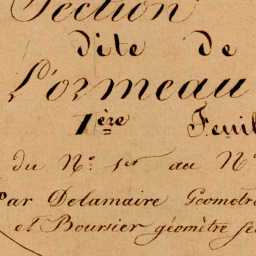 Section
dite de
L'ormeau
1ère Feuil
du N.º 1er au Nº
Par Delamaire Géometre
et Boursier géomètre se